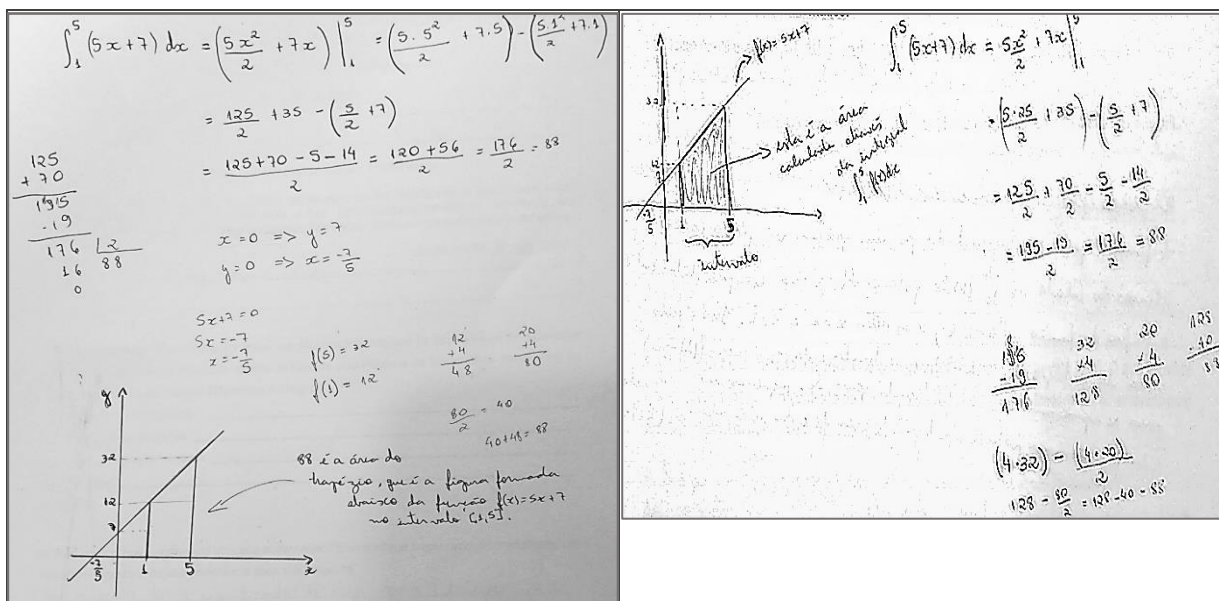 ∫₁⁵ (5x+7) dx = (5x²/2 + 7x) |₁⁵ = (5.5²/2 + 7.5) - (5.1²/2 + 7.1)
= 125/2 + 35 - (5/2 + 7)
= (125+70-5-14)/2 = (120+56)/2 = 176/2 = 88
125
+70
195
-19
176 |2
16 88
0
x=0 => y=7
y=0 => x=-7/5
5x+7=0
5x=-7
x=-7/5
f(5)=32
f(1)=12
12
×4
48
20
×4
80
80/2 = 40
40+48=88
y
32
12
7
-7/5
1
5
x
88 é a área do
trapézio, que é a figura formada
abaixo da função f(x)=5x+7
no intervalo [1,5].
f(x)=5x+7
32
12
7
-7/5
1
5
intervalo
esta é a área
calculada através
da integral
∫₁⁵ f(x)dx
∫₁⁵ (5x+7) dx = 5x²/2 + 7x |₁⁵
= (5.25/2 + 35) - (5/2 + 7)
= 125/2 + 70/2 - 5/2 - 14/2
= (195-19)/2 = 176/2 = 88
-19
176
32
×4
128
20
×4
80
128
-40
88
(4.32) - (4.20)/2
128 - 80/2 = 128-40 = 88